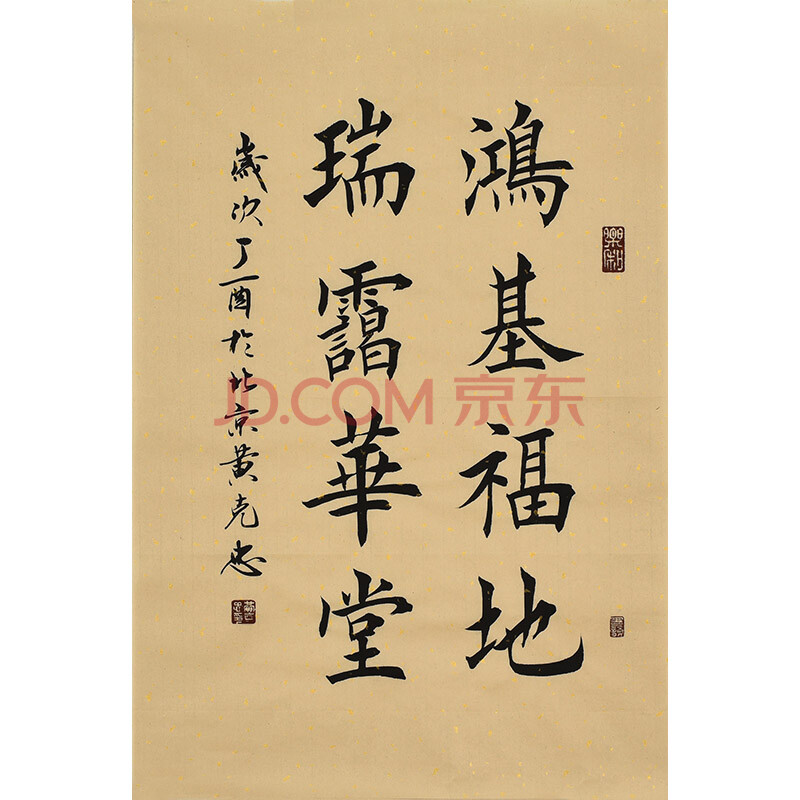 鴻基福地
瑞靄華堂
歲次丁酉於北京黄克忠
JD.COM 京东